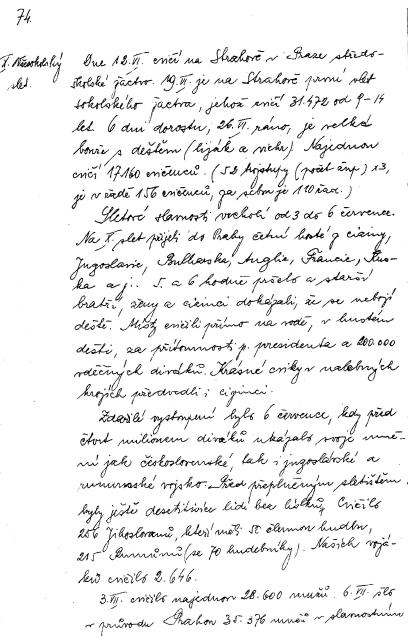 74.
X. Všesokolský slet.
Dne 12.VI. cvičí na Strahově v Praze středo-
školské žactvo. 19.VI. je na Strahově první slet
sokolského žactva, jehož cvičí 31.472 od 9-14
let. 6 dní dorostu, 26.VI. ráno, je velká
bouře s deštěm (liják a vichr) Najednou
cvičí 17160 cvičenců. (52 zástupy (počet) x3,
je v řadě 156 cvičenců, za sebou je 110 řad.)
Sletové slavnosti vrcholí od 3 do 6 července.
Na X. slet přijeli do Prahy četní hosté z ciziny,
Jugoslavie, Bulharska, Anglie, Francie, Rus-
ka a j.. 5. a 6 hodně pršelo a starší
bratři, ženy a cvičenci dokázali, že se nebojí
deště. Mužy cvičili přímo na vodě, v hustém
dešti, za přítomnosti p. presidenta a 200.000
vděčných diváků. Krásné cviky v malebných
krojích předvedli i cizinci.
Zdařilé vystoupení bylo 6 července, kdy před
čtvrt milionem diváků ukázalo svoje umě-
ní jak československé, tak i jugoslávské a
rumunské vojsko. Před přeplněným sletištěm
byly ještě desetitisíce lidí bez lístků. Cvičilo
256 Jihoslovanů, kteří měli 50 člennou hudbu,
215 Rumunů (se 70 hudebníky). Našich vojá-
ků cvičilo 2.646.
3.VII. cvičilo najednou 28.600 mužů. 6.VII. šlo
v průvodu Prahou 35.376 mužů v slavnostním